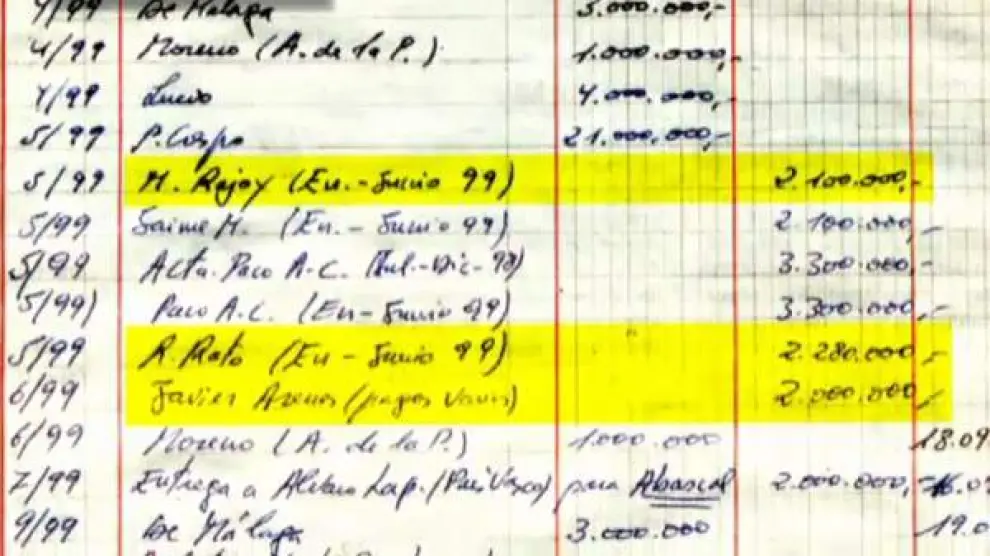 4/99 De Málaga 3.000.000,-
4/99 Moreno (A. de la P.) 1.000.000,-
4/99 Lucio 4.000.000,-
5/99 P. Crespo 21.000.000,-
5/99 M. Rajoy (En.-Junio 99) 2.100.000,-
5/99 Jaime M. (En.-Junio 99) 2.100.000,-
5/99 Acta. Paco A.C. (Jul.-Dic-98) 3.300.000,-
5/99) Paco A.C. (En-Junio 99) 3.300.000,-
5/99 R. Rato (En-Junio 99) 2.280.000,-
6/99 Javier Arenas (pagos varios) 2.000.000,-
6/99 Moreno (A. de la P.) 1.000.000 18.09
7/99 Entrega a Alvaro Lap. (País Vasco) para Abascal 2.000.000,-
9/99 De Málaga 3.000.000 19.0